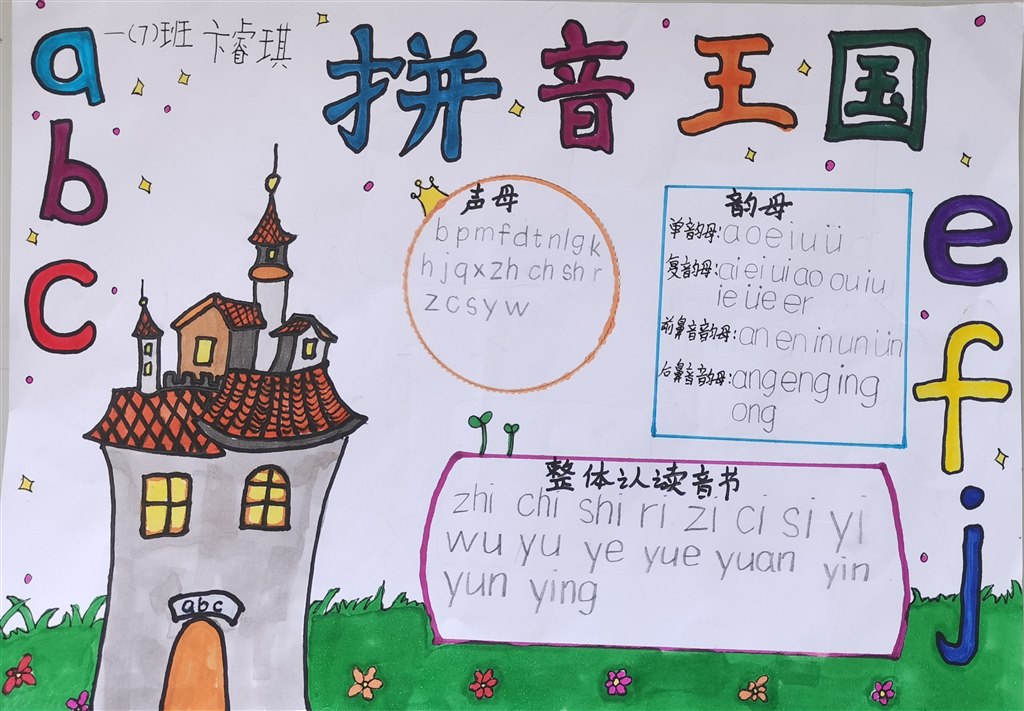 一(7)班 卞睿琪
拼音王国
a
b
c
声母
b p m f d t n l g k
h j q x zh ch sh r
z c s y w
韵母
单韵母: a o e i u ü
复韵母: ai ei ui ao ou iu
ie üe er
前鼻音韵母: an en in un ün
后鼻音韵母: ang eng ing
ong
整体认读音节
zhi chi shi ri zi ci si yi
wu yu ye yue yuan yin
yun ying
abc
e
f
j